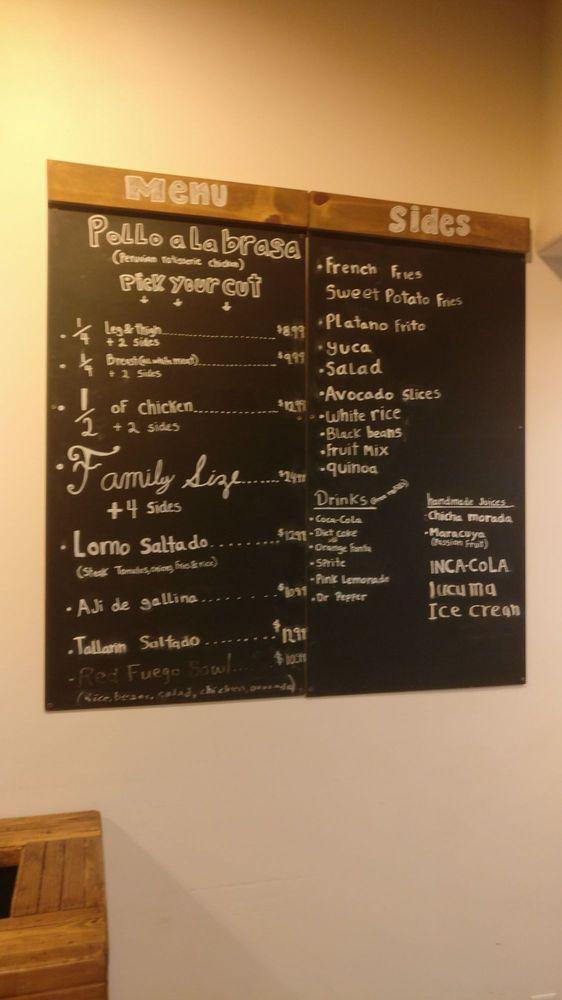 Menu
Pollo a La brasa
(Peruvian rotisserie chicken)
Pick your cut
1/4 Leg & thigh $8.99
+ 2 sides
1/4 Breast (all white meat) $9.99
+ 2 sides
1/2 of chicken $12.99
+ 2 sides
Family Size
+4 Sides
Lomo Saltado $12.99
(Steak, Tomatoes, onions, fries & rice)
Aji de gallina
Tallarin Saltado
Red Fuego Bowl $10.99
(Rice, beans, salad, chicken, avocado)
Sides
French Fries
Sweet Potato Fries
Platano Frito
Yuca
Salad
Avocado Slices
White rice
Black beans
Fruit Mix
quinoa
Drinks
Coca-Cola
Diet coke
Orange fanta
Sprite
Pink Lemonade
Dr Pepper
handmade Juices
Chicha morada
Maracuya
(Passion Fruit)
INCA-COLA
lucuma
Ice cream